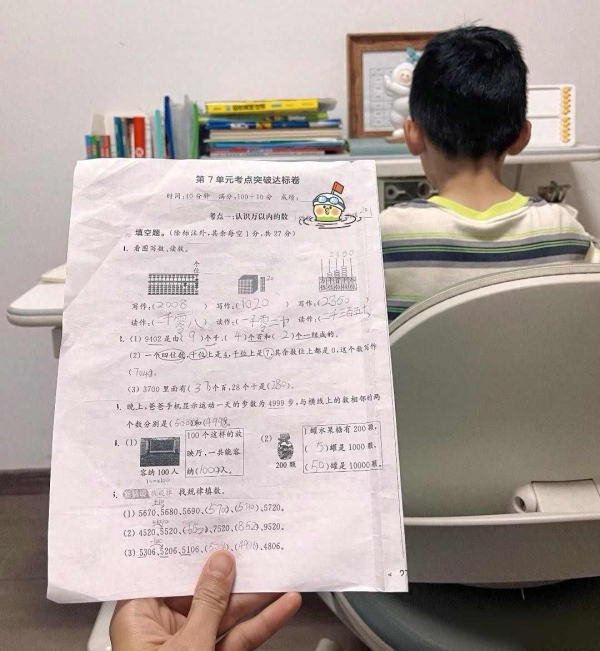 第7单元考点突破达标卷
时间:40分钟 满分:100+10分 成绩:
考点一:认识万以内的数
填空题。(除标注外,其余每空1分,共27分)
1. 看图写数、读数。
个位
写作:(2008) 写作:(1020) 写作:(2350)
读作:(二千零八) 读作:(一千零二十 读作:(二千三百五
2. (1) 9402是由(9)个千、(4)个百和(2)个一组成的。
(2) 一个四位数,十位上是4,千位上是7,其余数位上都是0,这个数写作
(7040)。
(3) 3700里面有(37)个百,28个十是(280)。
晚上,爸爸手机显示运动一天的步数为4999步,与横线上的数相邻的两
个数分别是(5000)和(4998)。
(1) 100个这样的放映厅,一共能容纳(10000)人。
容纳100人
(2) 1罐水果糖有200颗,
(5)罐是1000颗,
(50)罐是10000颗。
200颗
找规律填数。
(1) 5670、5680、5690、(5700)、(5710)、5720。
(2) 4520、5520、(6520)、7520、(8520)、9520。
(3) 5306、5206、5106、( )、(4906)、4806。